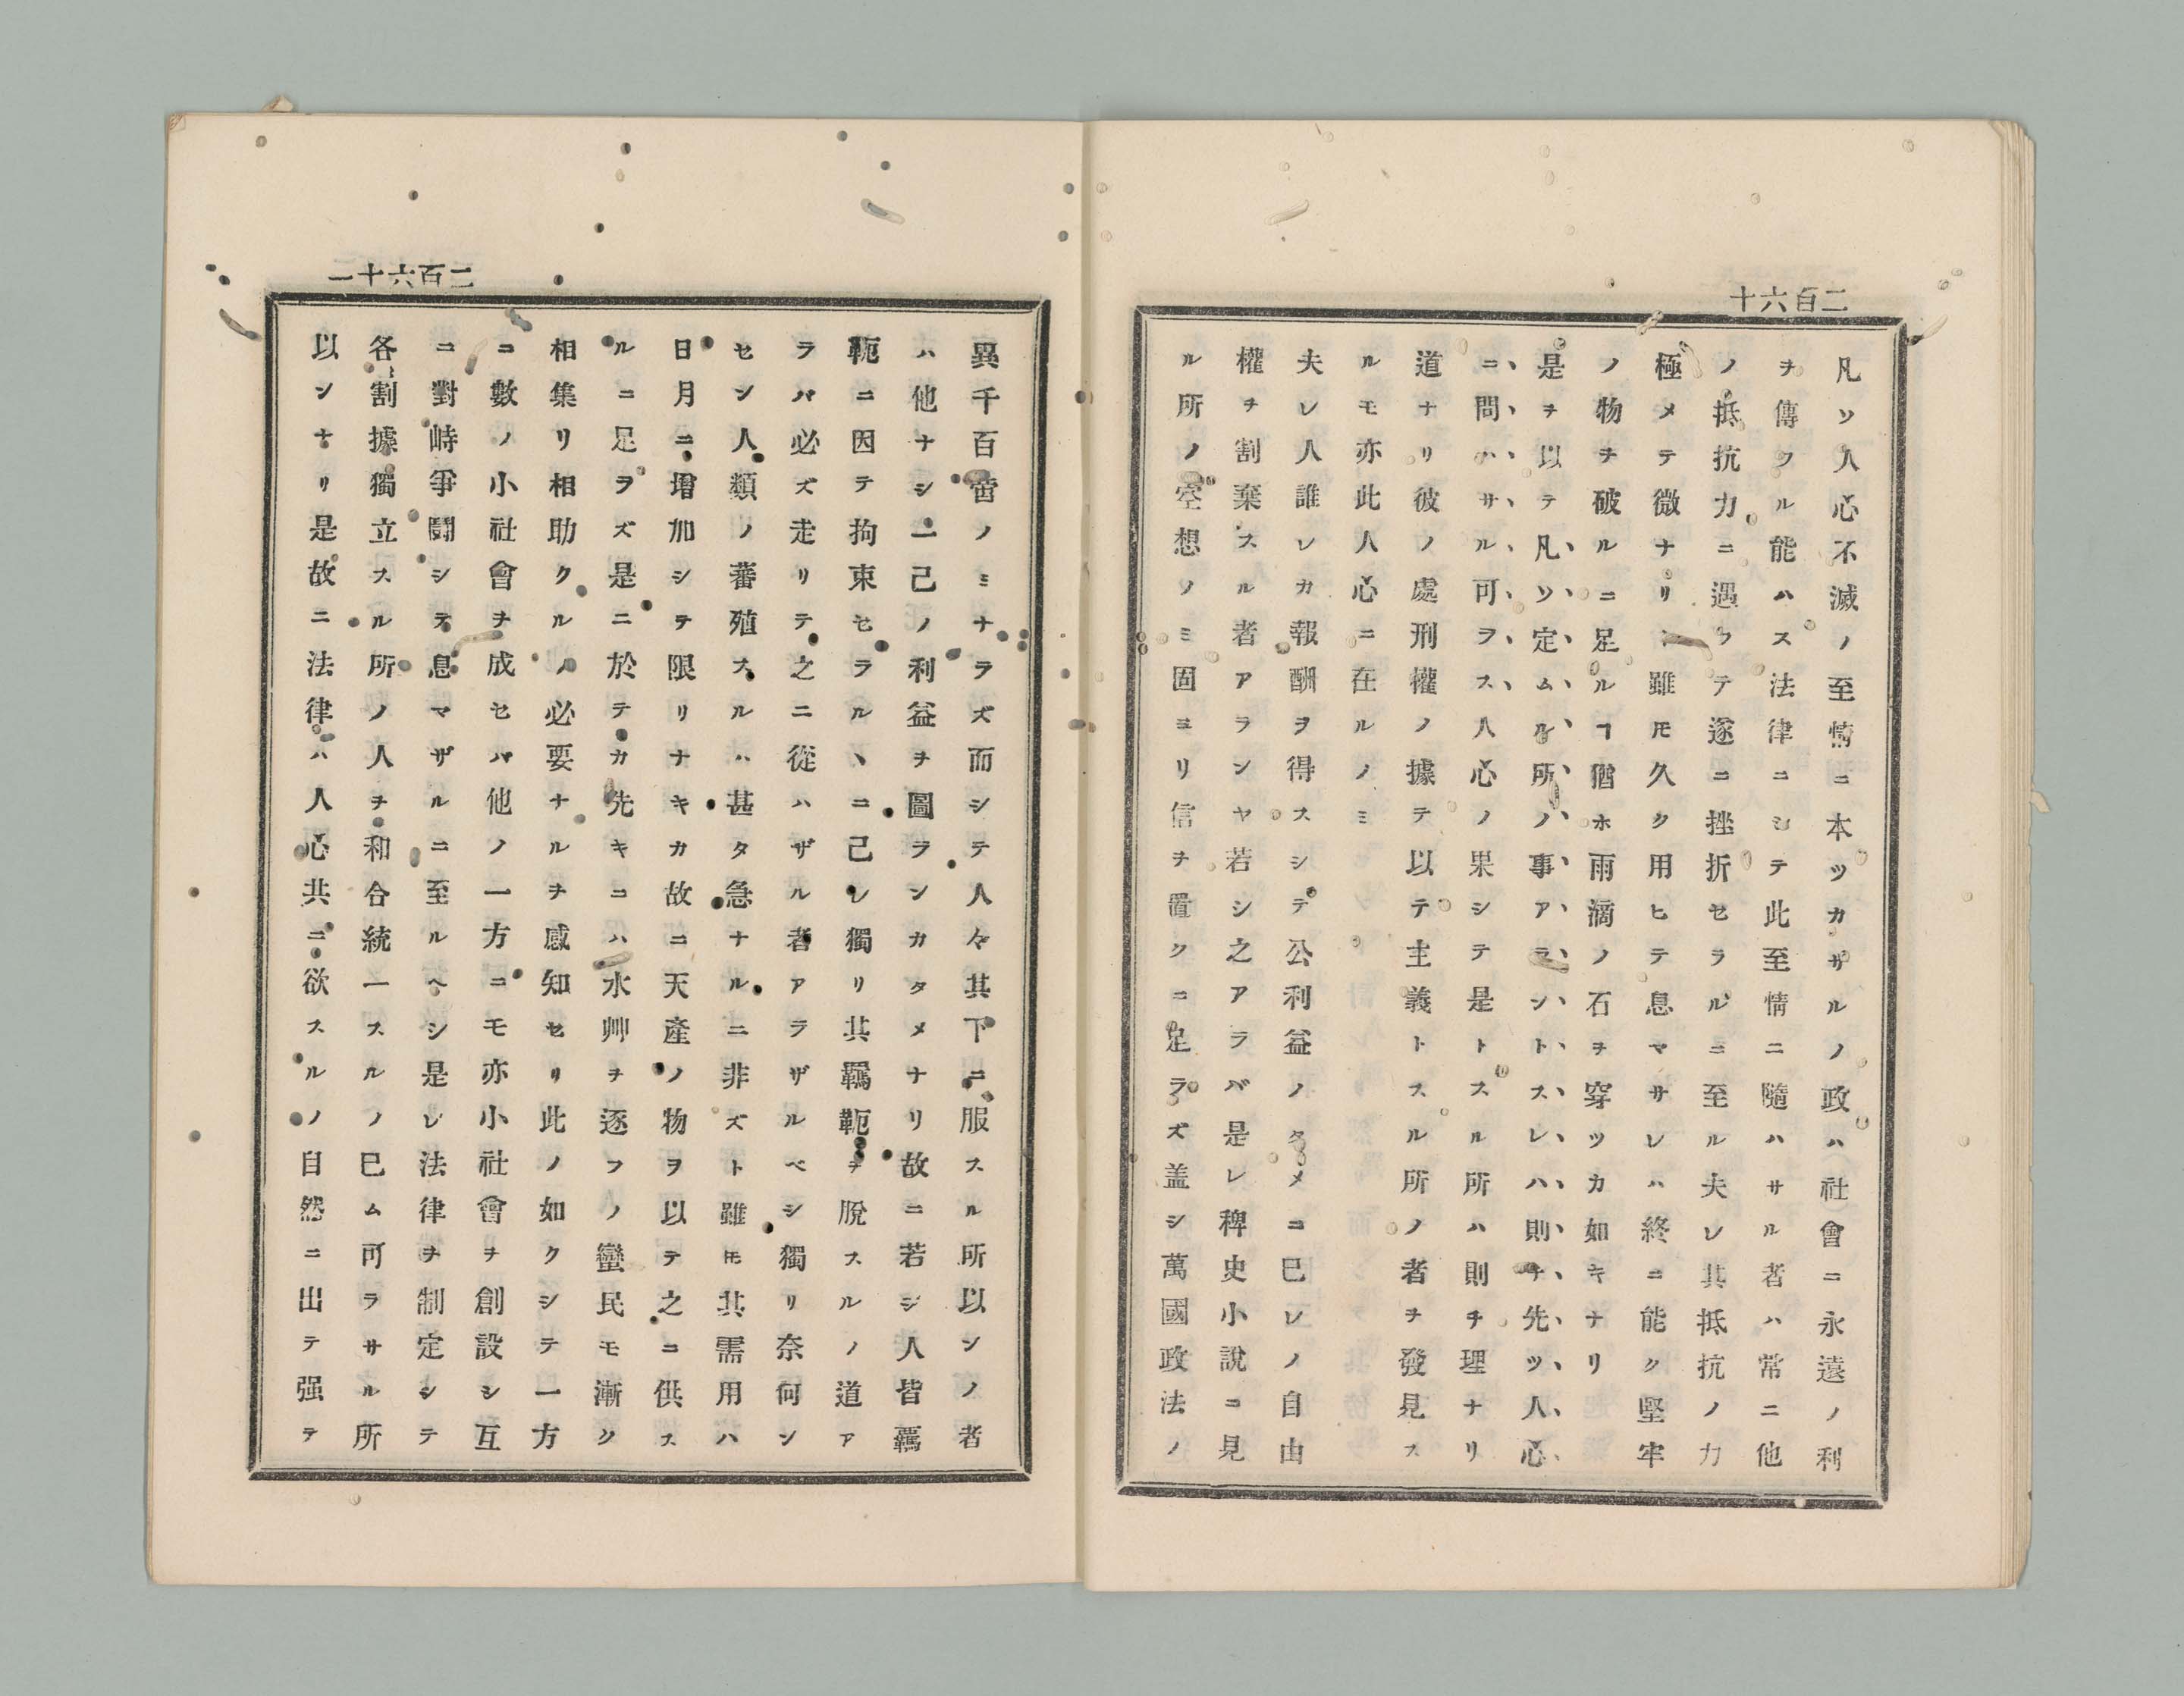 二百六十
凡ソ人心不滅ノ至情ニ本ツカザルノ政ハ社會ニ永遠ノ利
ヲ傳フル能ハス法律ニシテ此至情ニ隨ハサル者ハ常ニ他
ノ抵抗力ニ遇フテ遂ニ挫折セラルニ至ル夫レ其抵抗ノ力
極メテ微ナリト雖モ久ク用ヒテ息マサレハ終ニ能ク堅牢
ノ物ヲ破ルニ足ルヿ猶ホ雨滴ノ石ヲ穿ツカ如キナリ
是ヲ以テ凡ソ定ムル所ノ事アラントスレハ則チ先ツ人心
ニ問ハサル可ラス人心ノ果シテ是トスル所ハ則チ理ナリ
道ナリ彼ノ處刑權ノ據テ以テ主義トスル所ノ者ヲ發見ス
ルモ亦此人心ニ在ルノミ
夫レ人誰レカ報酬ヲ得スシテ公利益ノタメニ已レノ自由
權ヲ割棄スル者アランヤ若シ之アラバ是レ稗史小說ニ見
ル所ノ空想ノミ固ヨリ信ヲ置クニ足ラズ盖シ萬國政法ノ
二百六十一
異千百啻ノミナラズ而シテ人々其下ニ服スル所以ンノ者
ハ他ナシ一己ノ利益ヲ圖ランカタメナリ故ニ若シ人皆羈
軛ニ因テ拘束セラルヽニ己レ獨リ其羈軛ヲ脫スルノ道ア
ラバ必ズ走リテ之ニ從ハザル者アラザルベシ獨リ奈何ン
セン人類ノ蕃殖スルハ甚タ急ナルニ非ズト雖モ其需用ハ
日月ニ增加シテ限リナキカ故ニ天產ノ物ヲ以テ之ニ供ス
ルニ足ラズ是ニ於テカ先キニハ水艸ヲ逐フノ蠻民モ漸ク
相集リ相助クルノ必要ナルヲ感知セリ此ノ如クシテ一方
ニ數ノ小社會ヲ成セハ他ノ一方ニモ亦小社會ヲ創設シ互
ニ對峙爭鬪シテ息マザルニ至ルヘシ是レ法律ヲ制定シテ
各割據獨立スル所ノ人ヲ和合統一スルノ已ム可ラサル所
以ンナリ是故ニ法律ハ人心共ニ欲スルノ自然ニ出テ强テ